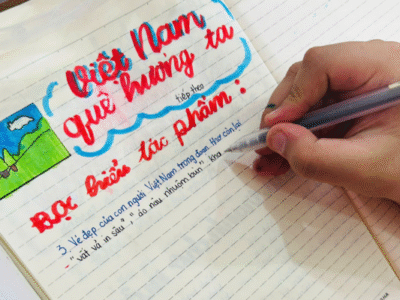 Việt Nam
quê hương ta
tiếp theo
Đọc hiểu tác phẩm:
3. Vẻ đẹp của con người Việt Nam trong đoạn thơ còn lại
- "vất vả in sâu", "áo nâu nhuộm bùn", kha